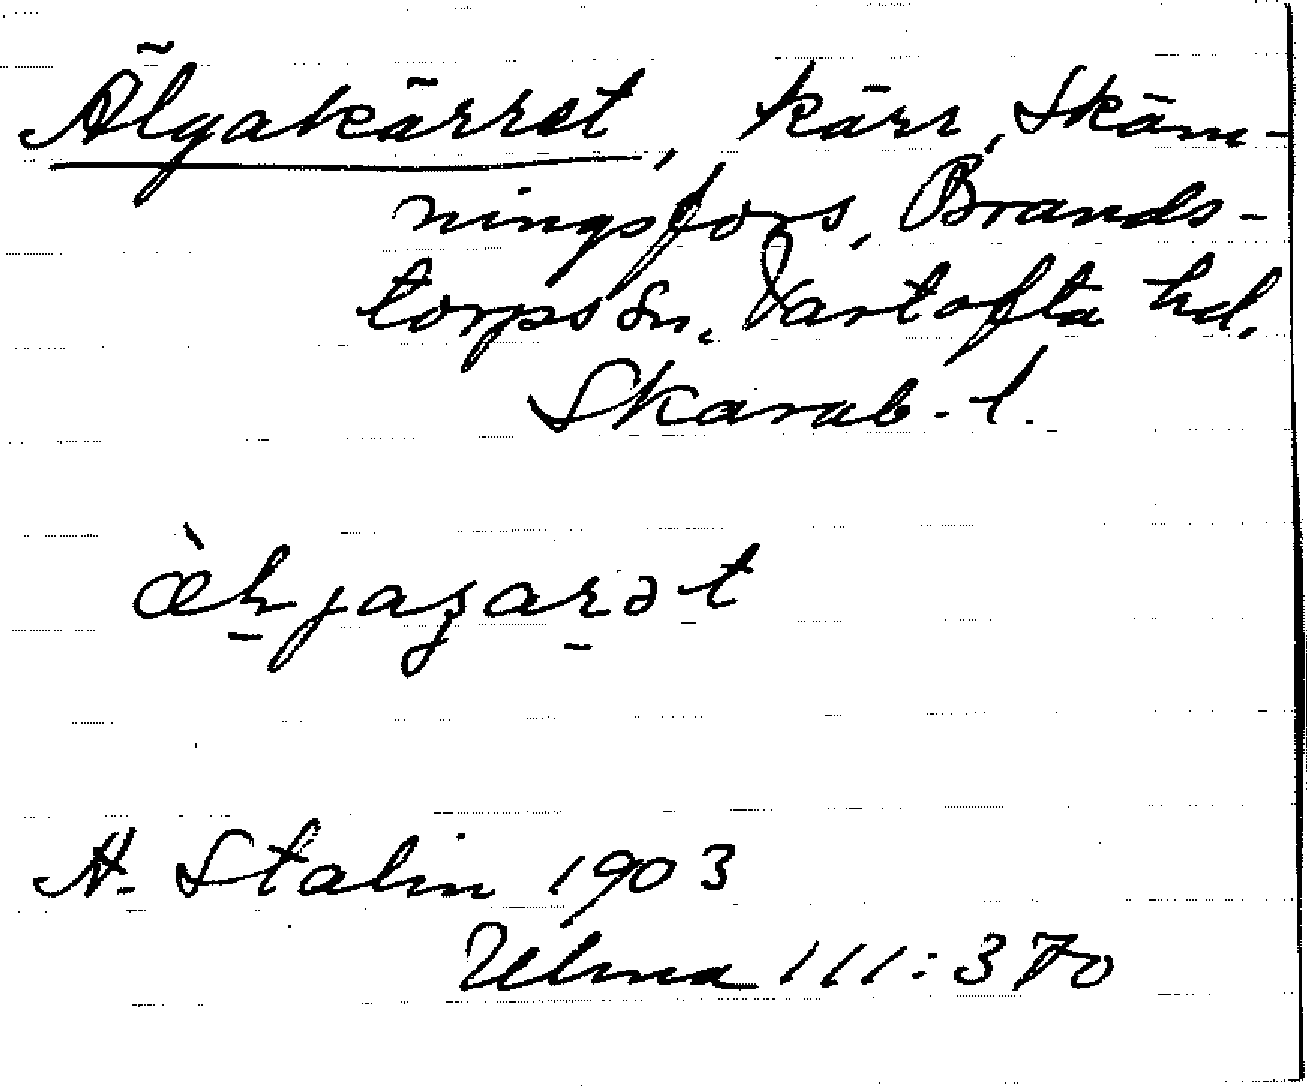 Älgakärret, kärr, Skäm-
ningsfors, Brands-
torps sn. Vartofta hd.
Skarab. l.
A. Stalin 1903
Ulma 111:370